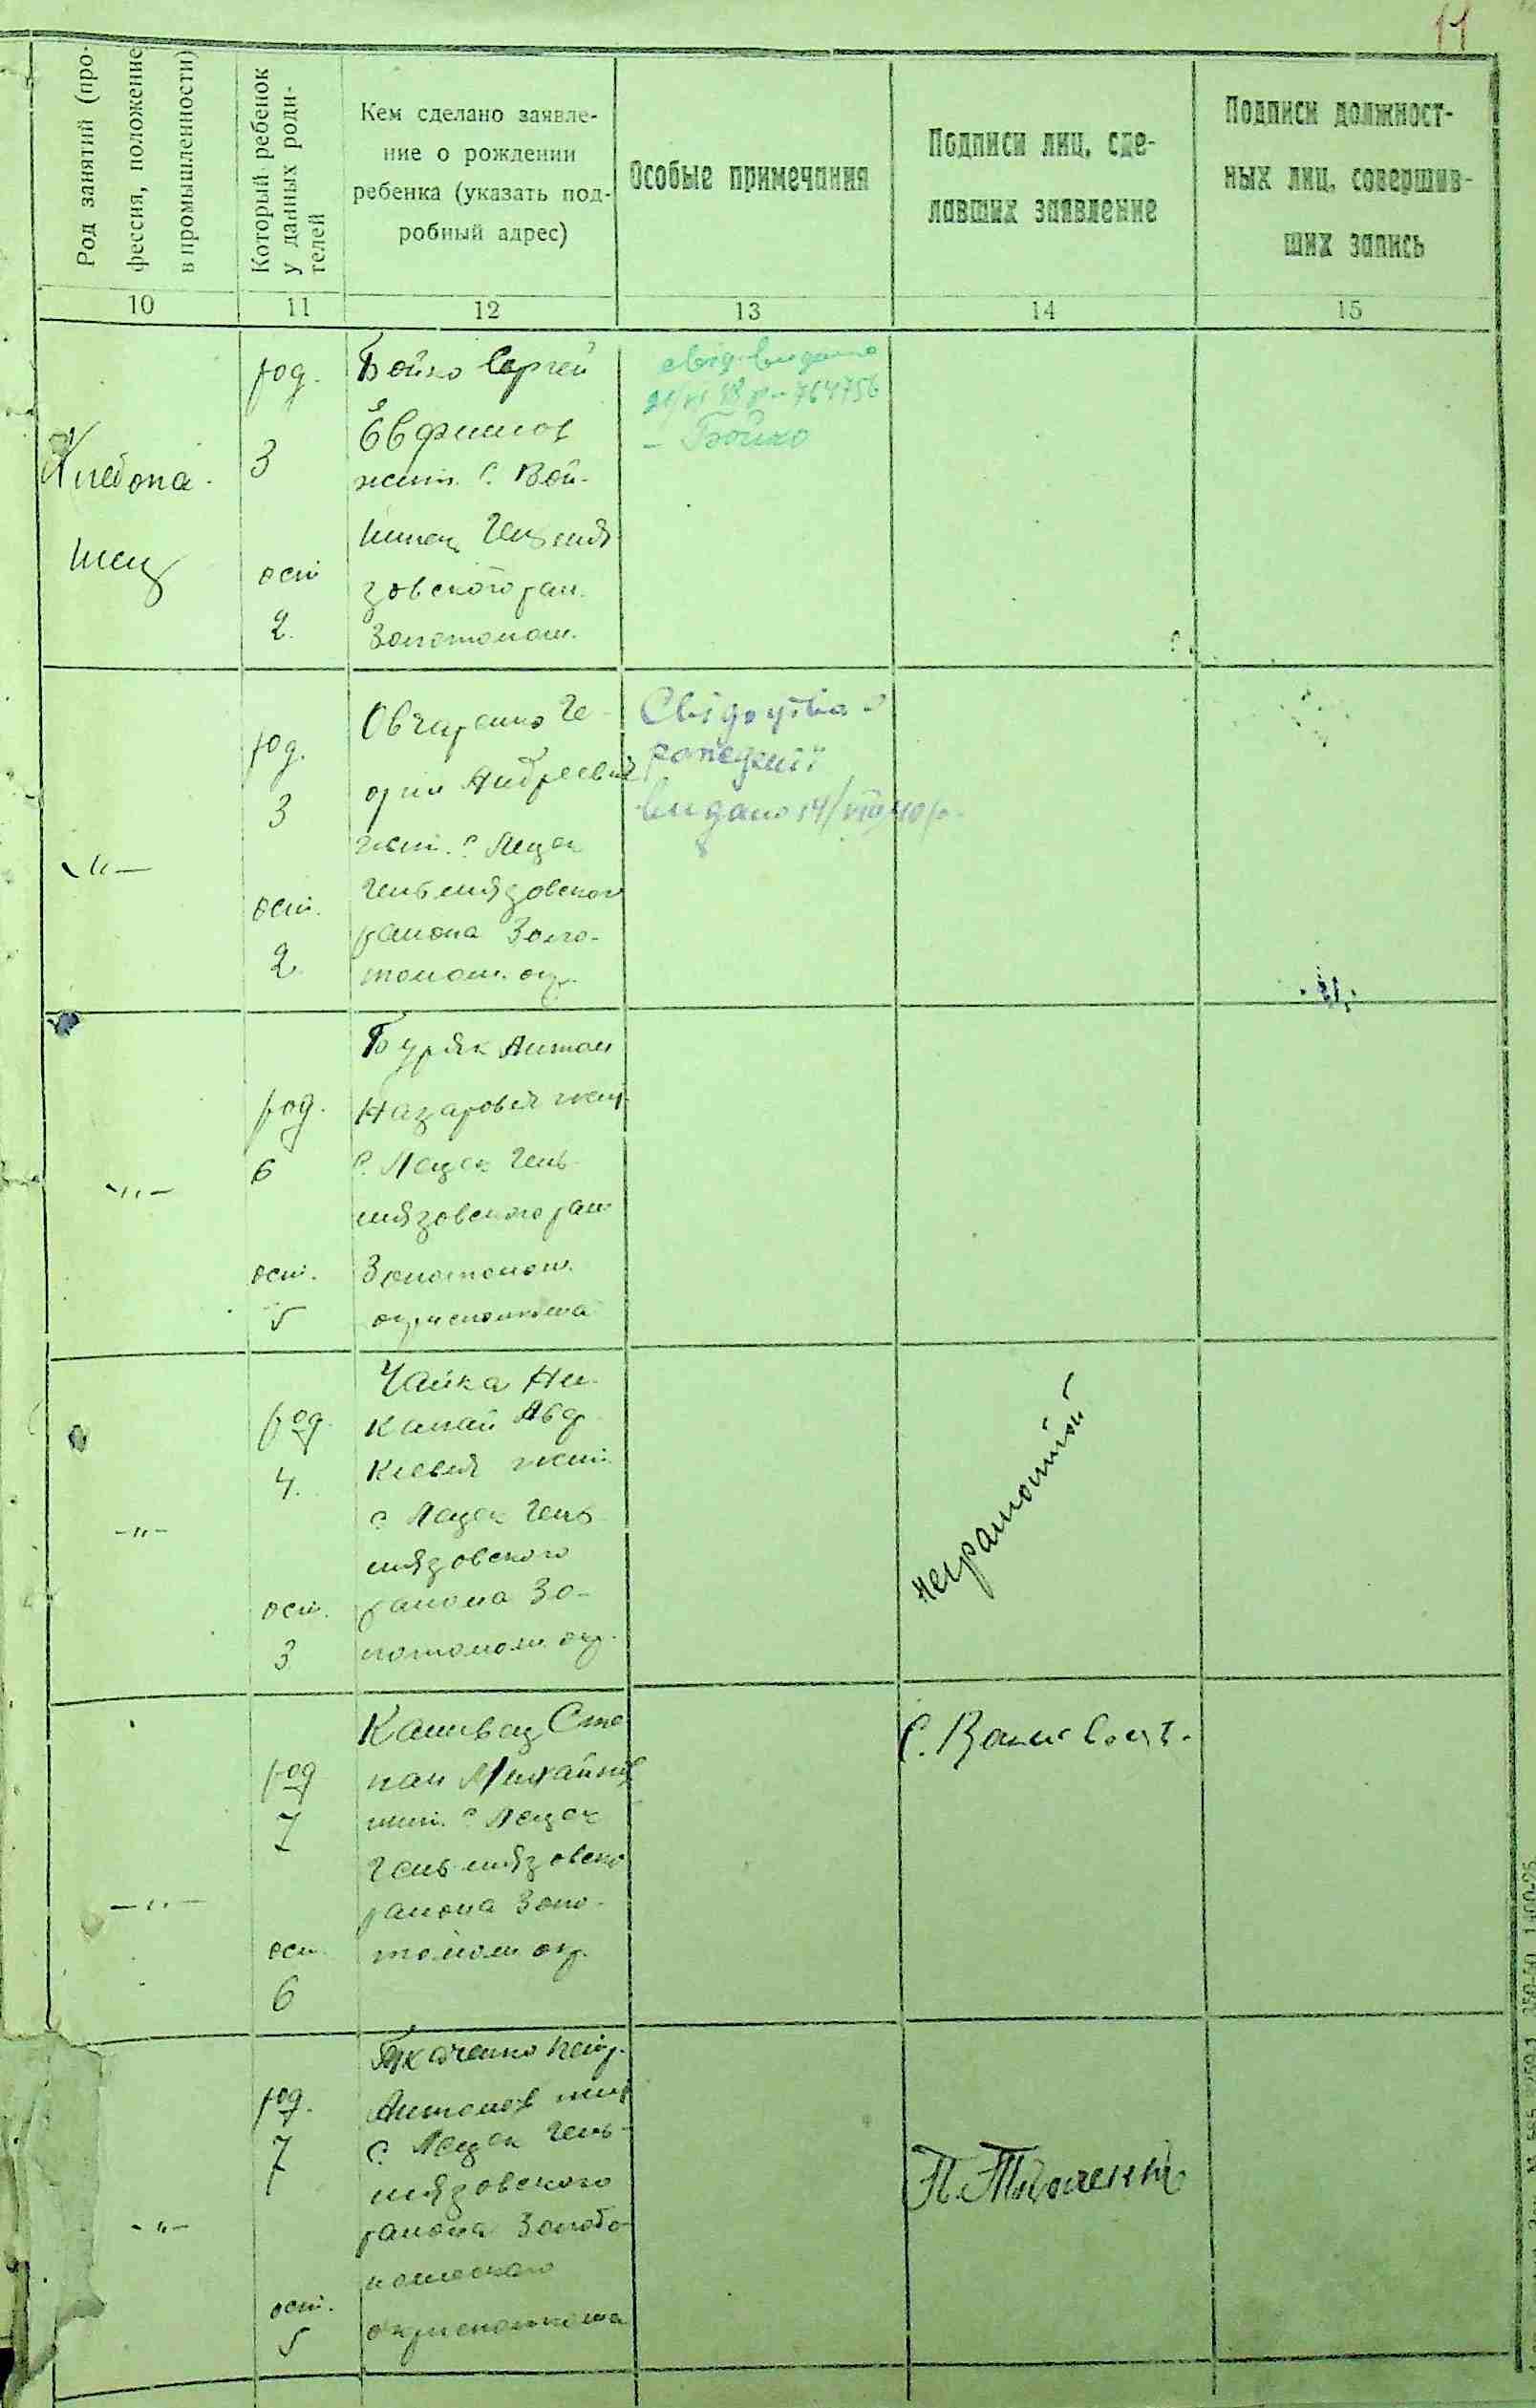 11
Род занятий (про-
фессия, положение
в промышленности)
Который ребенок
у данных роди-
телей
Кем сделано заявле-
ние о рождении
ребенка (указать под-
робный адрес)
Особые примечания
Подписи лиц, сде-
лавших заявление
Подписи должност-
ных лиц, совершив-
ших запись
10
11
12
13
14
15
Хлебопа-
шец
род.
3
ост
2.
Бойко Сергей
Евфимов
жит. с. Вой-
зовского рай.
Золотонош.
свід. видано
764756
- Бойко
-"-
род.
3
ост.
2
Овчаренко Ге-
оргий Андреевич
жит. с.
Гельмязовского
района Золо-
тонош. окр.
Свідоцтво о
рождении
видано 14/VIII 40 р.
-"-
род.
6
ост.
5
Буряк Антон
Назарович жит.
с. Гель-
мязовского рай
Золотонош.
окрисполкома
-"-
род.
4.
ост.
3
Чайка Ни-
колай Авд
киевич жит.
с. Гель
мязовского
района Зо-
лотонош. окр.
неграмотной
-"-
род
7
ост.
6
Степан Михайлов
жит. с.
Гельмязовско
района Золо-
тонош окр.
-"-
род.
7
ост.
5
Ткаченко Петр
Антонов жит
с. Гель-
мязовского
района Золото-
ношского
окрисполкома
П. Ткаченко